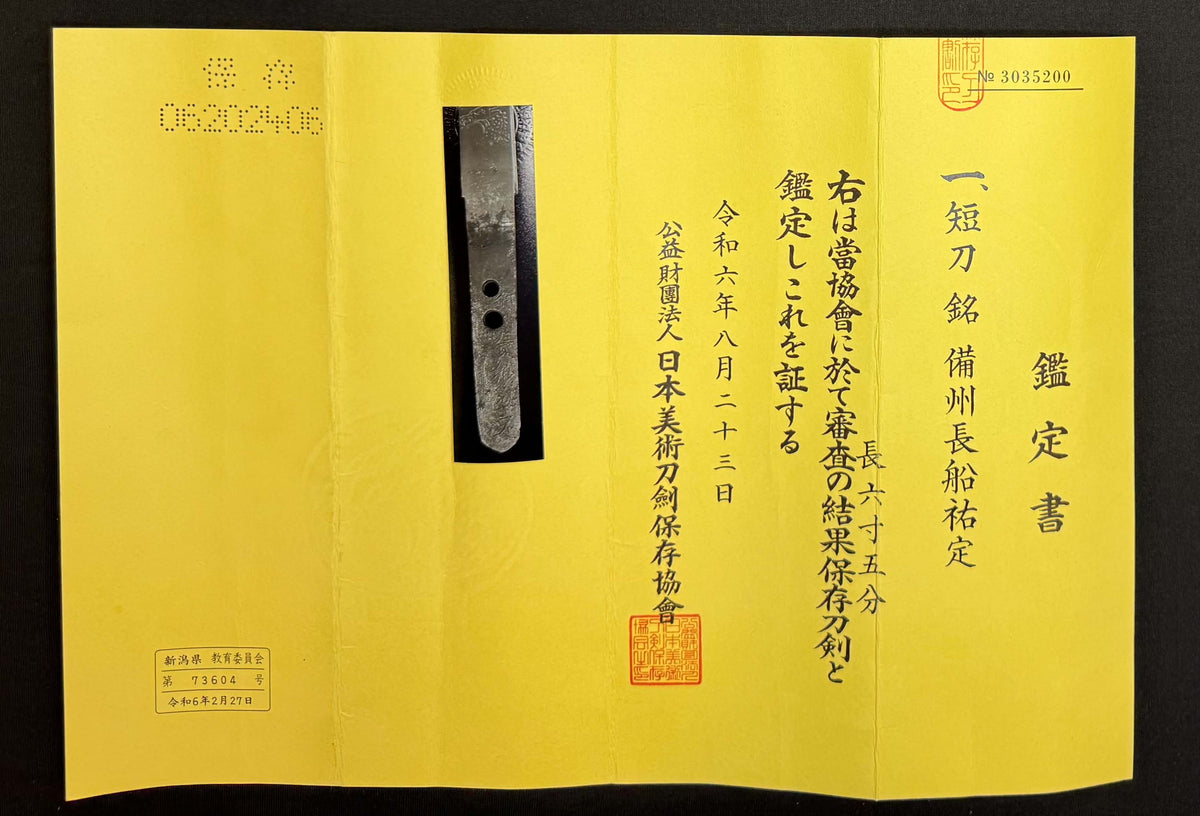 № 3035200
鑑定書
一、短刀 銘 備州長船祐定
長六寸五分
右は當協會に於て審査の結果保存刀剣と
鑑定しこれを証する
令和六年八月二十三日
公益財團法人日本美術刀劍保存協會
保存
06202406
新潟県 教育委員会
第 73604 号
令和6年2月27日